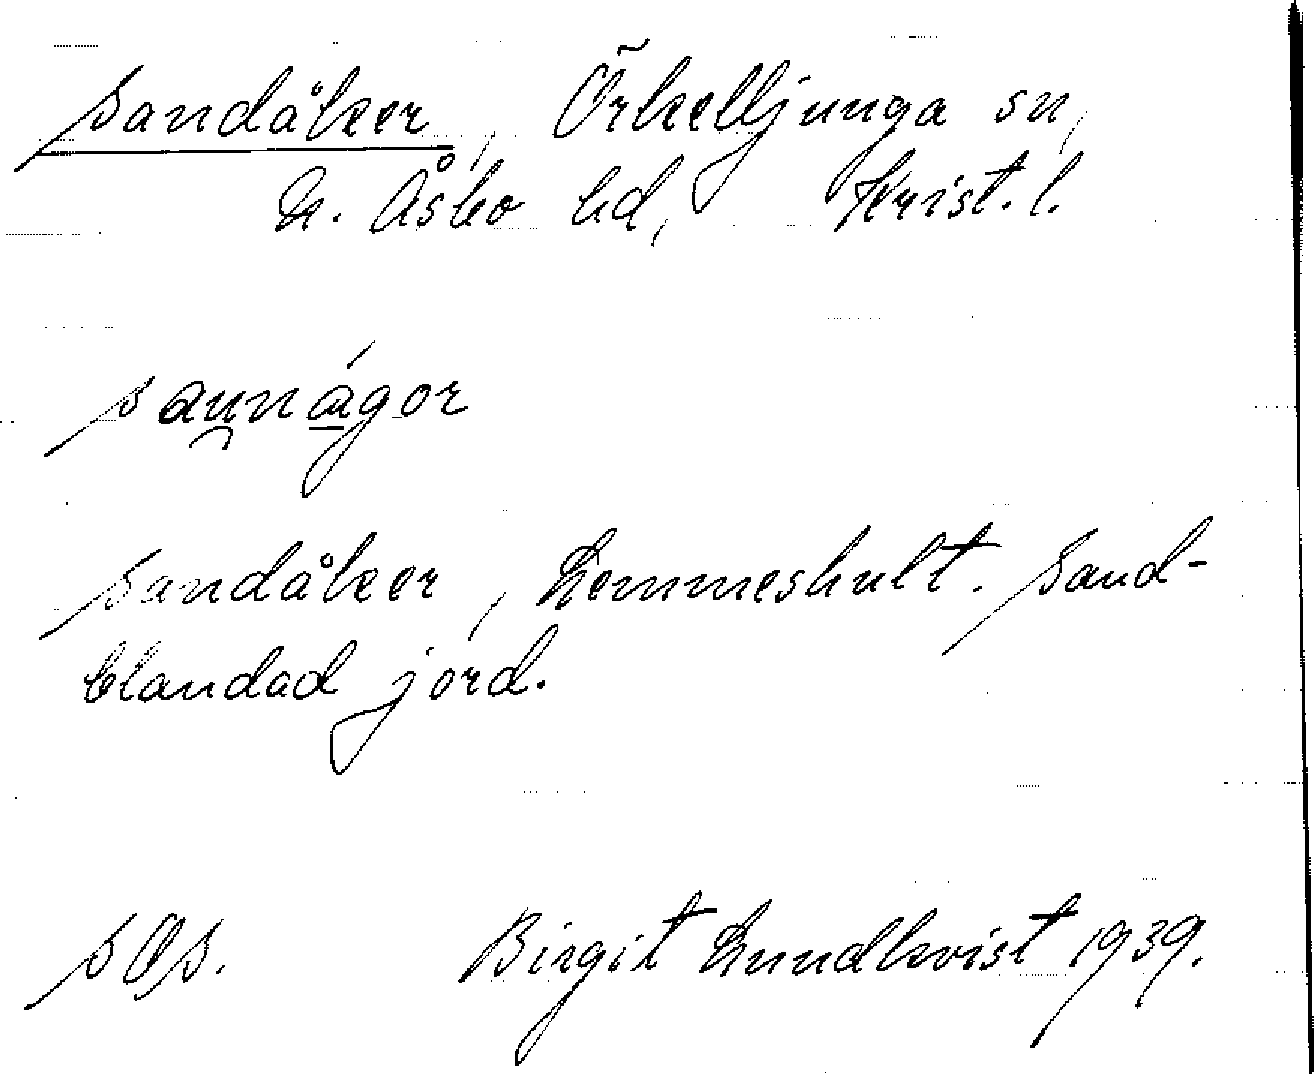 Sandåker, Örkelljunga sn,
N. Åsbo hd, Krist. l.
sannágor
Sandåker, Lemmeshult. Sand-
blandad jord.
Birgit Lundkvist 1939.